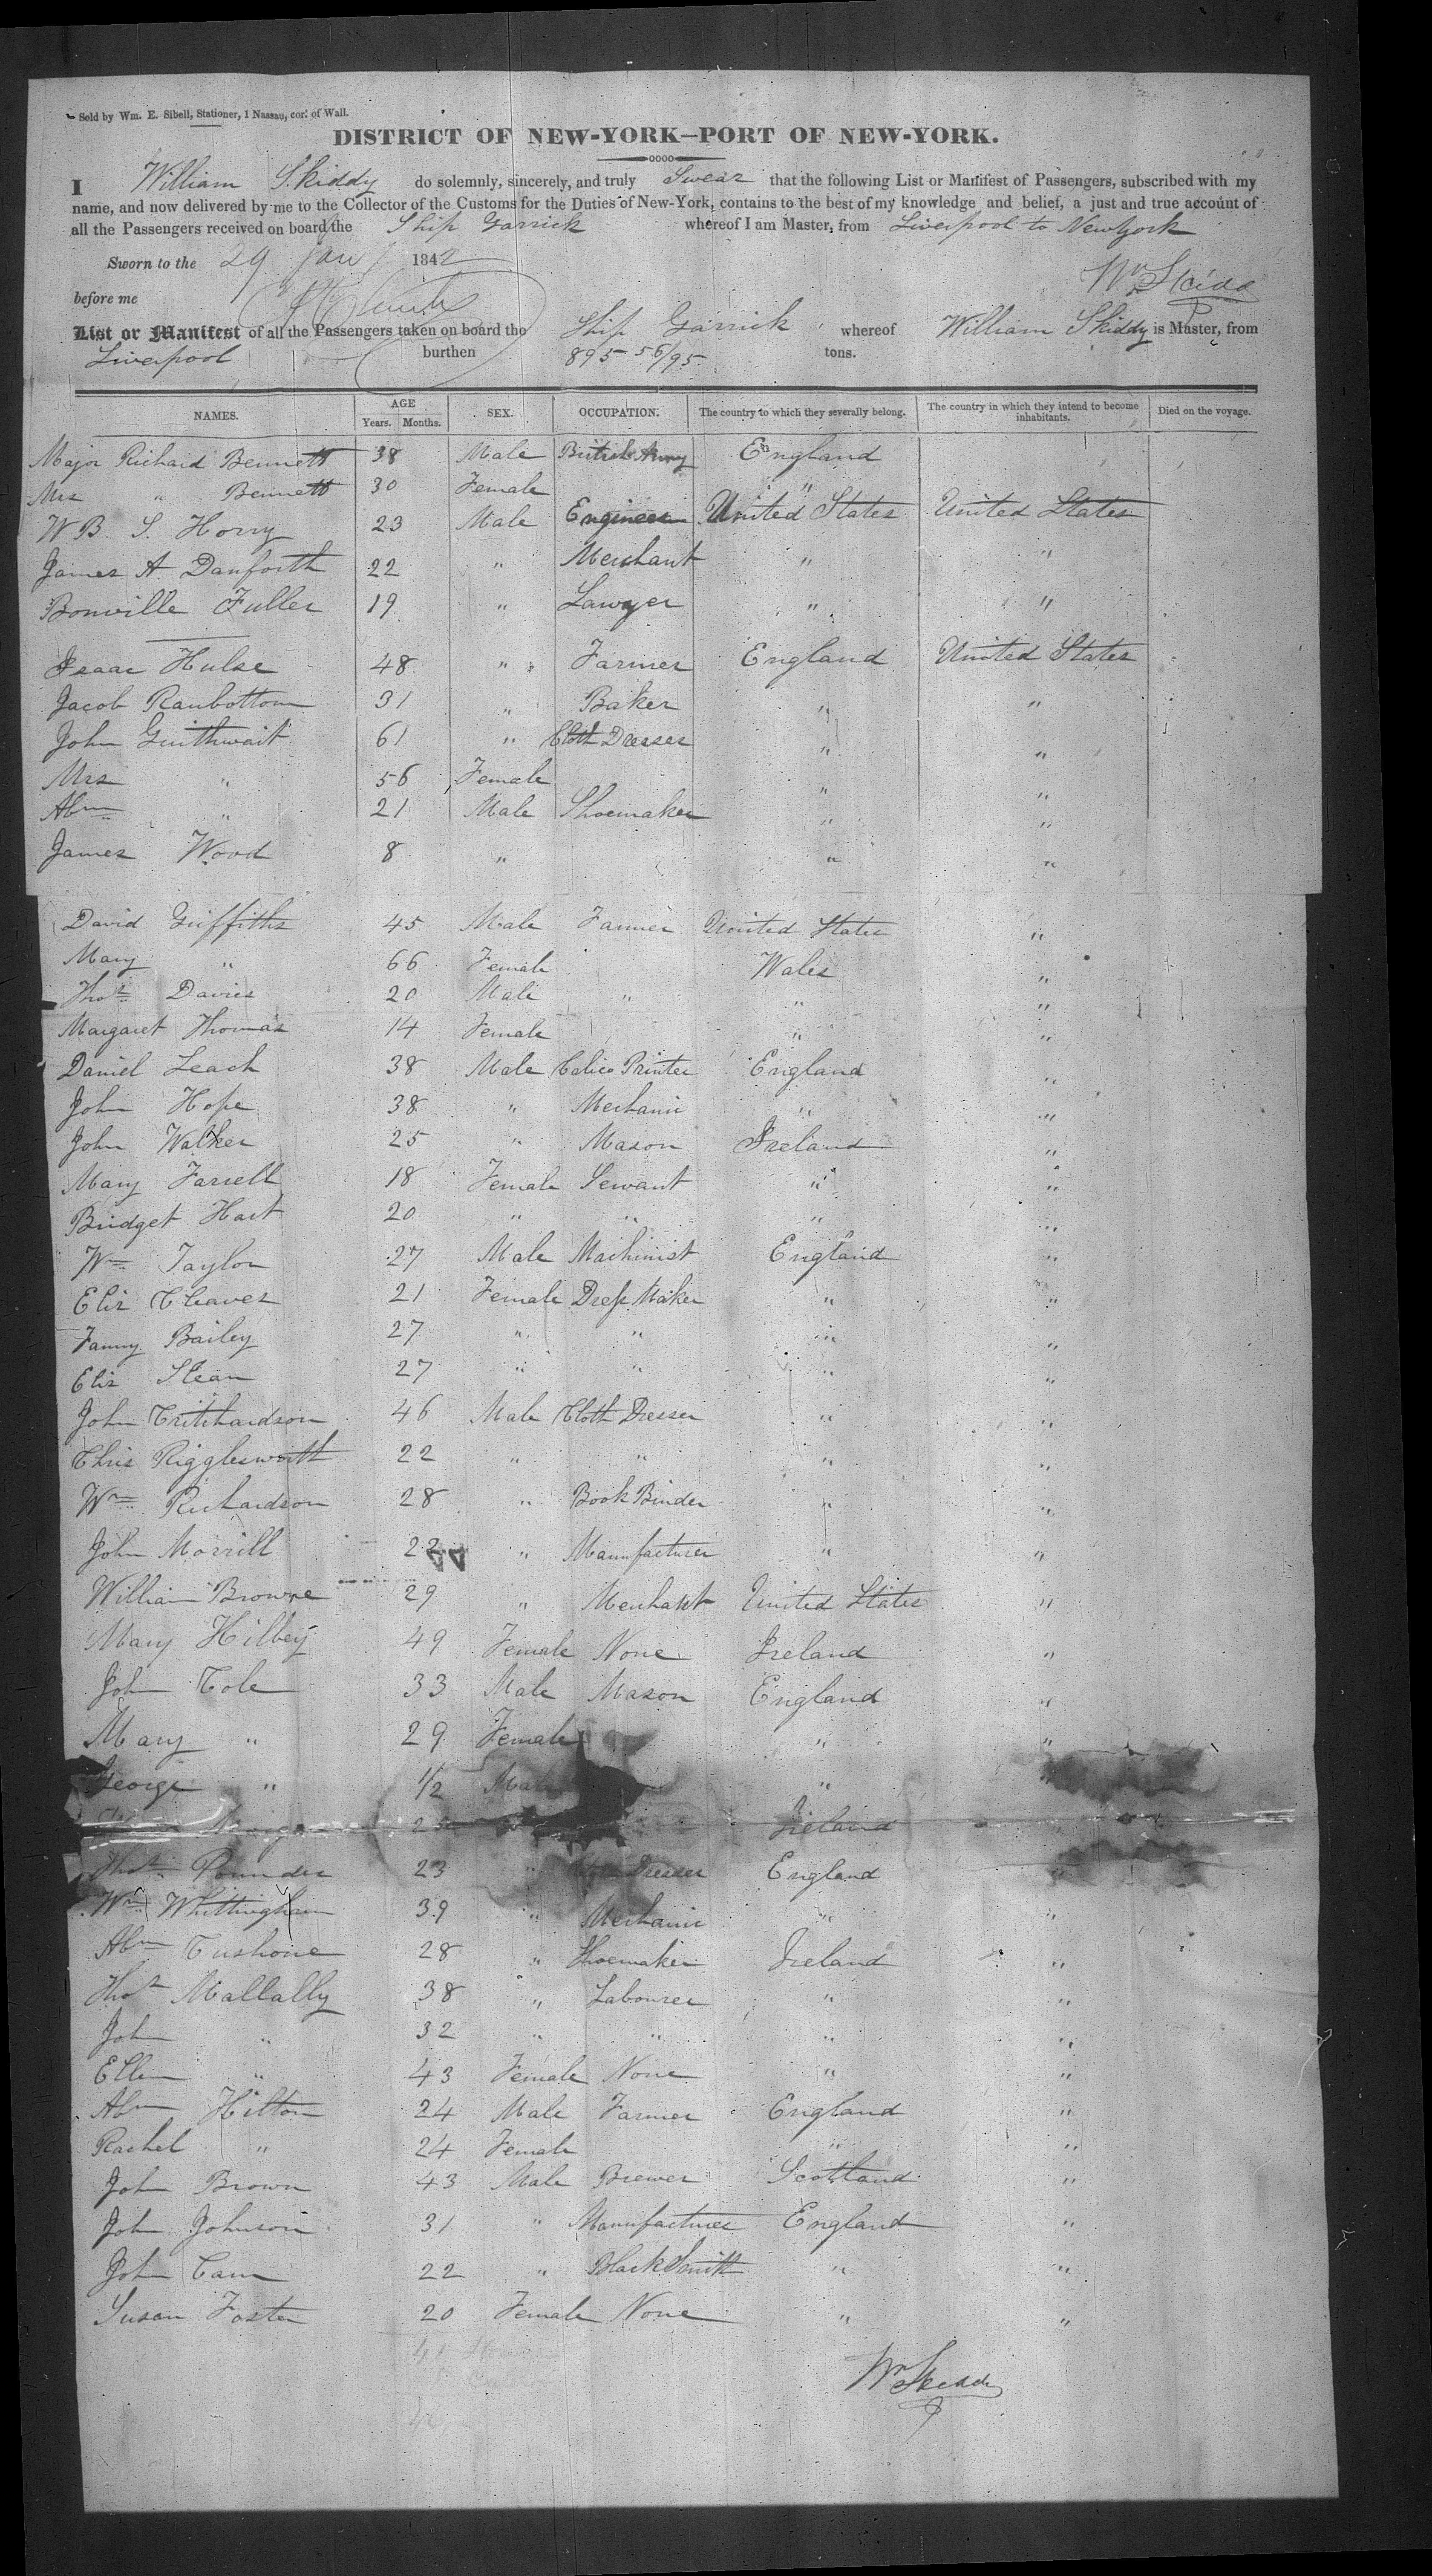 Sold by Wm. E. Sibell, Stationer, 1 Nassau, cor. of Wall.
DISTRICT OF NEW-YORK—PORT OF NEW-YORK.
I William Skiddy do solemnly, sincerely, and truly Swear that the following List or Manifest of Passengers, subscribed with my
name, and now delivered by me to the Collector of the Customs for the Duties of New-York, contains to the best of my knowledge and belief, a just and true account of
all the Passengers received on board the Ship Garrick whereof I am Master, from Liverpool to New York
Sworn to the 29 Jany 1842
Wm Skiddy
before me
List or Manifest of all the Passengers taken on board the Ship Garrick whereof William Skiddy is Master, from
Liverpool burthen 895 56/95 tons.
NAMES. AGE Years. Months. SEX. OCCUPATION. The country to which they severally belong. The country in which they intend to become inhabitants. Died on the voyage.
Major Richard Bennett 38 Male British Army England
Mrs " Bennett 30 Female "
W B. S. Horry 23 Male Engineer United States United States
James A Danforth 22 " Merchant " "
Bonville Fuller 19 " Lawyer " "
Isaac Hulse 48 " Farmer England United States
Jacob Ranbottom 31 " Baker " "
John Guithwait 61 " Cloth Dresser " "
Mrs " 56 Female " "
Abm " 21 Male Shoemaker " "
James Wood 8 " " "
David Griffiths 45 Male Farmer United States "
Mary " 66 Female Wales "
Thos Davies 20 Male " " "
Margaret Thomas 14 Female " "
Daniel Leach 38 Male Calico Printer England "
John Hope 38 " Mechanic " "
John Walker 25 " Mason Ireland "
Mary Farrell 18 Female Servant " "
Bridget Hart 20 " " " "
Wm Taylor 27 Male Machinist England "
Eliz Cleaver 21 Female Dress Maker " "
Fanny Bailey 27 " " " "
Eliz Slean 27 " " " "
John Critchardson 46 Male Cloth Dresser " "
Chris Rigglesworth 22 " " " "
Wm Richardson 28 " Book Binder " "
John Morrill 22 " Manufacturer " "
44
William Browne 29 " Merchant United States "
Mary Hilbey 49 Female None Ireland "
John Cole 33 Male Mason England "
Mary " 29 Female " "
George " 1/2 Male " "
Ireland
Thos Pounder 23 " Dresser England "
Wm Whittingham 39 " Mechanic " "
Abm Cushone 28 " Shoemaker Ireland "
Thos Mallally 38 " Labourer " "
John " 32 " " " "
Ellen " 43 Female None " "
Abm Hilton 24 Male Farmer England "
Rachel " 24 Female " "
John Brown 43 Male Brewer Scotland "
John Johnson 31 " Manufacturer England "
John Cam 22 " Black Smith " "
Susan Foster 20 Female None " "
Wm Skiddy